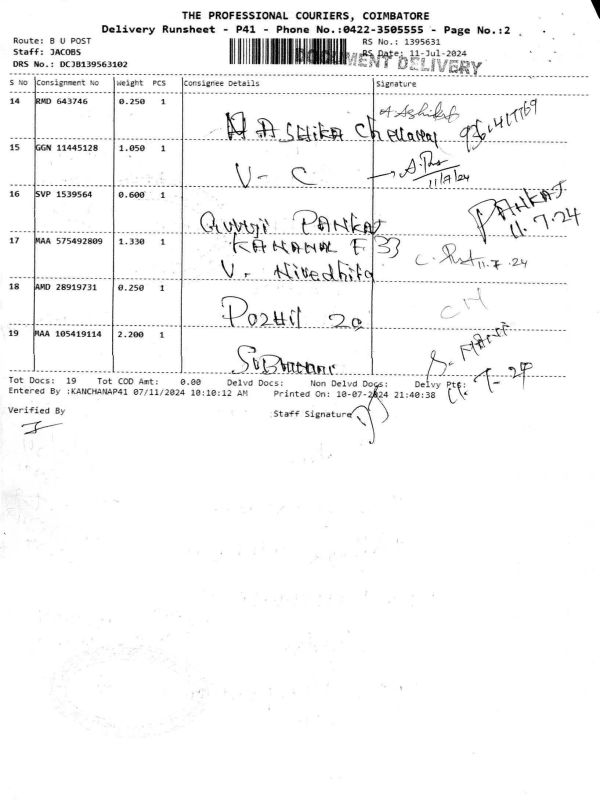 THE PROFESSIONAL COURIERS, COIMBATORE
Delivery Runsheet - P41 - Phone No.:0422-3505555 - Page No.:2
Route: B U POST
RS No.: 1395631
Staff: JACOBS
RS Date: 11-Jul-2024
DOCUMENT DELIVERY
DRS No.: DCJB139563102
S No Consignment No Weight PCS Consignee Details Signature
14 RMD 643746 0.250 1
15 GGN 11445128 1.050 1
V - C
11/7/24
16 SVP 1539564 0.600 1
PANKAJ
PANKAJ.
11.7.24
17 MAA 575492809 1.330 1
V. Nivedhita
11.7.24
18 AMD 28919731 0.250 1
19 MAA 105419114 2.200 1
S. MANI
Tot Docs: 19 Tot COD Amt: 0.00 Delvd Docs: Non Delvd Docs: Delvy Ptg:
Entered By :KANCHANAP41 07/11/2024 10:10:12 AM Printed On: 10-07-2024 21:40:38
Verified By
Staff Signature